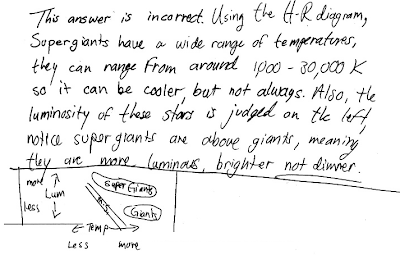 This answer is incorrect. Using the H-R diagram,
Supergiants have a wide range of temperatures,
they can range from around 1,000 - 30,000 K
so it can be cooler, but not always. Also, the
luminosity of these stars is judged on the left,
notice supergiants are above giants, meaning
they are more luminous, brighter not dimmer.
more
Lum
Less
Super Giants
M.S
Giants
← Temp →
Less more